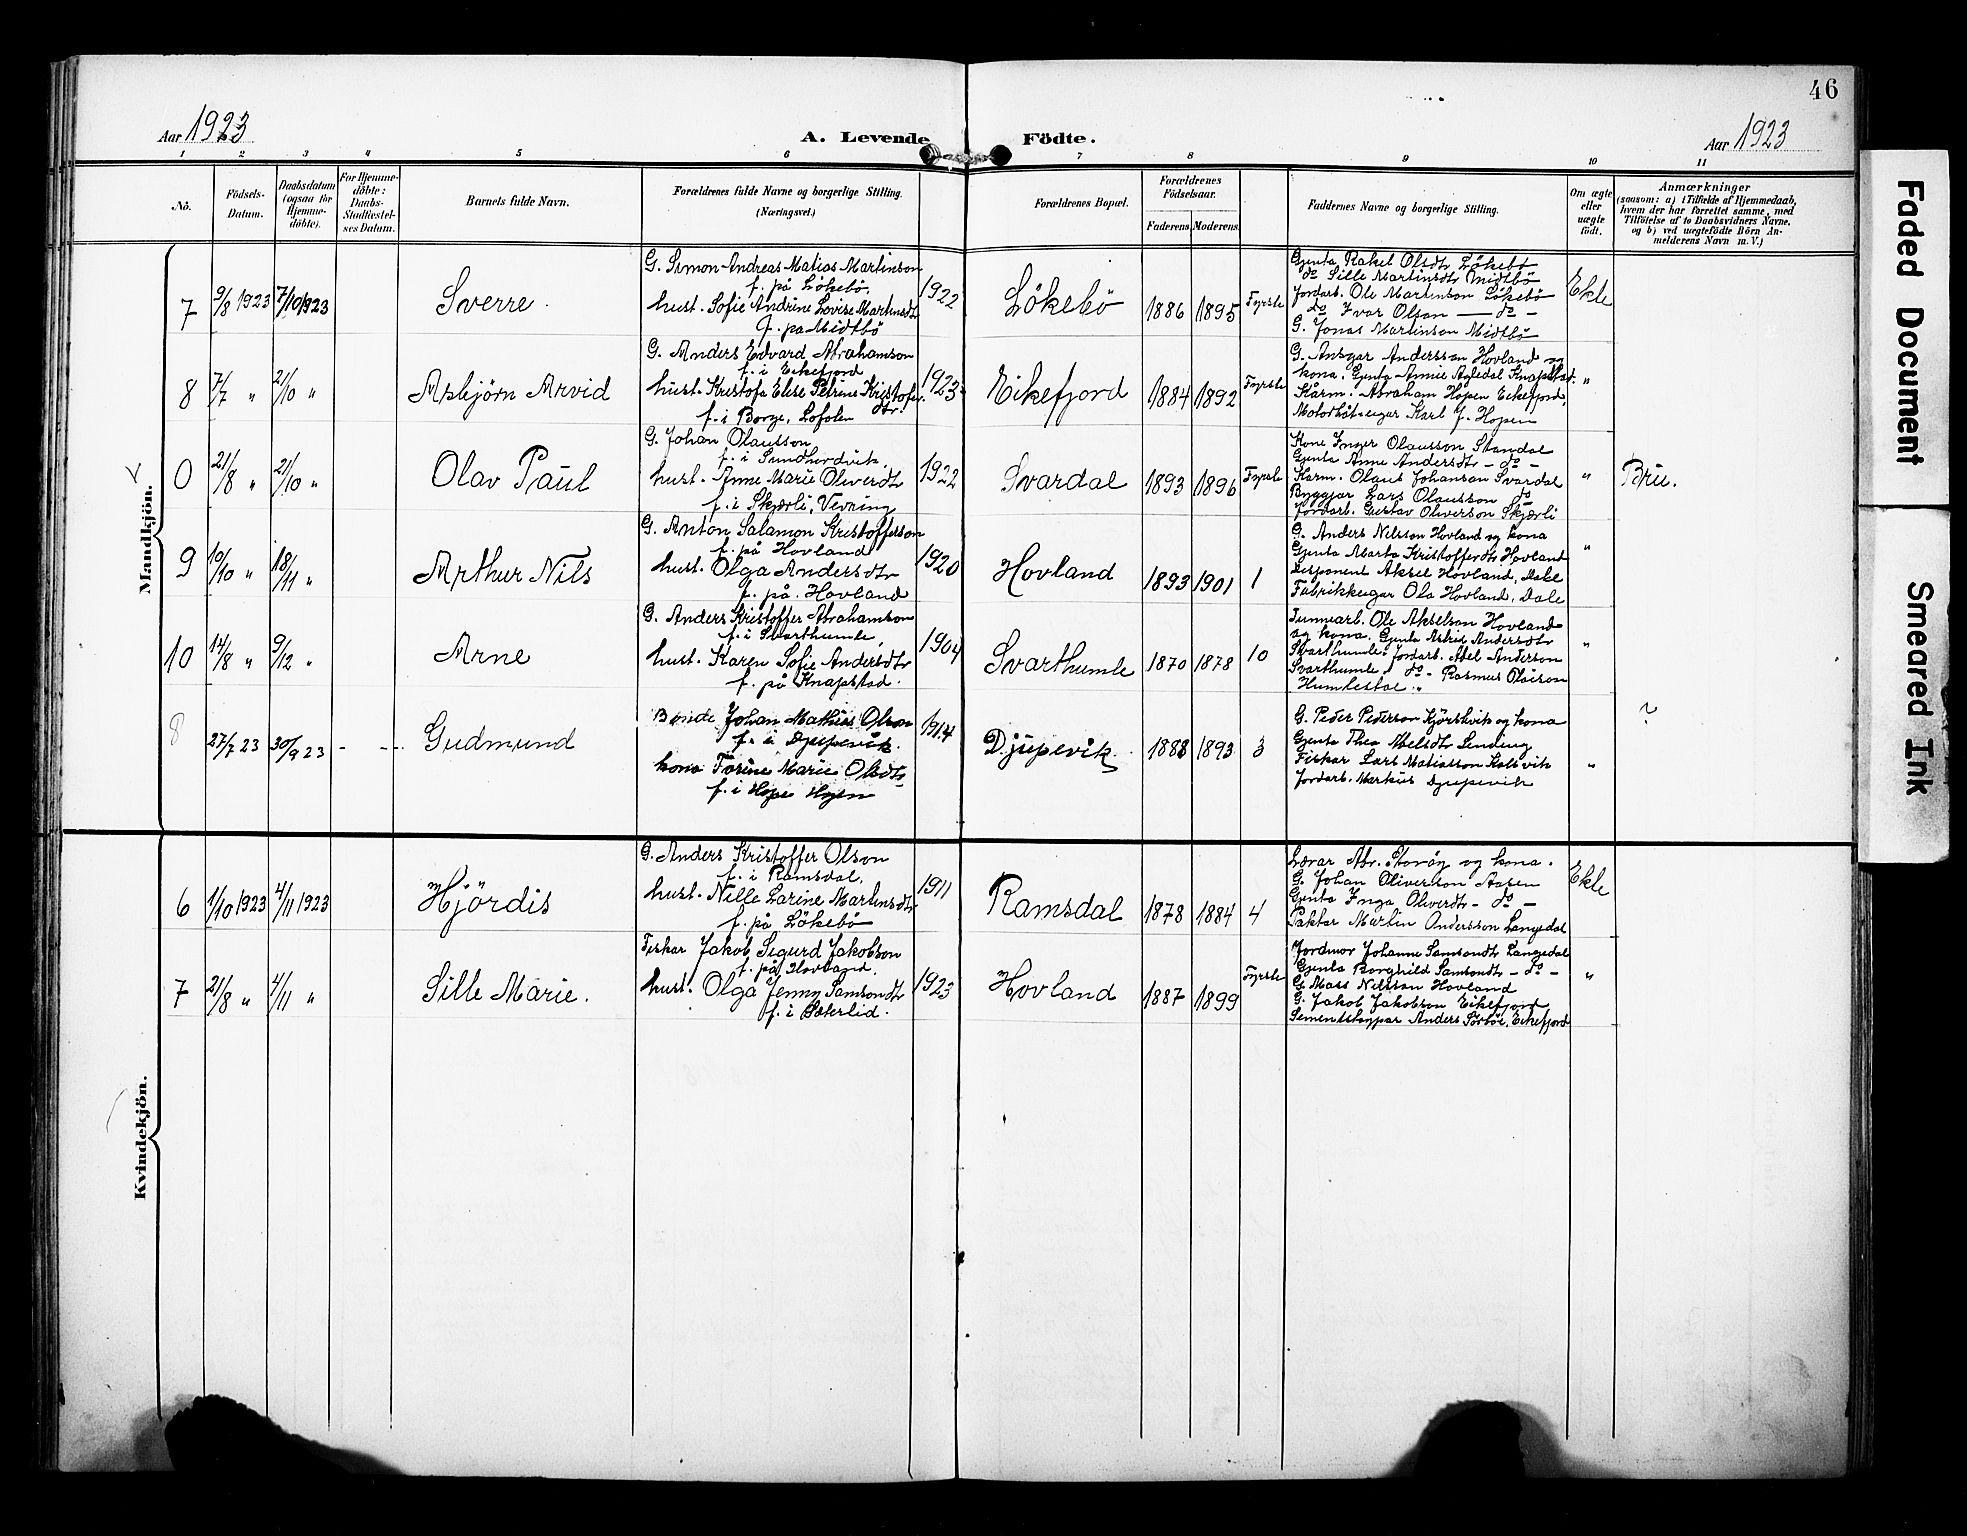 46
Aar 1923
A. Levende Födte.
Aar 1923
1 2 3 4 5 6 7 8 9 10 11
No.
Födsels-Datum.
Daabsdatum (ogsaa for Hjemme-döbte).
For Hjemme-döbte: Daabs-Stadfæstel-ses Datum.
Barnets fulde Navn.
Forældrenes fulde Navne og borgerlige Stilling.
(Næringsvei.)
Forældrenes Bopæl.
Forældrenes Födselsaar.
Faderens Moderens
Faddernes Navne og borgerlige Stilling.
Om ægte eller uægte født.
Anmærkninger
(saasom: a) i Tilfælde af Hjemmedaab,
hvem der har forrettet samme, med
Tilföielse af to Daabsvidners Navne,
og b) ved uægtefödte Börn An-
melderens Navn m. V.)
Mandkjön.
7 9/8 1923 7/10 1923 Sverre.
G. Simon Andreas Matias Martinson
f. på Løkebø.
hust. Sofie Andrine Lovise Martinsdtr
f. på Midtbø
1922 Løkebø 1886 1895 Fyrste
Gjenta Rakel Olsdtr Løkebø
do Sille Martinsdtr Midtbø
Jordarb. Ole Martinson Løkebø
do Ivar Olson — do —
G. Jonas Martinson Midtbø
Ekte
8 7/7 " 21/10 " Asbjörn Arvid
G. Anders Edvard Abrahamson
f. i Eikefjord
hust. Kristofa Elise Petrine Kristofer
dtr.
f. i Borge, Lofoten
1923 Eikefjord 1884 1892 Fyrste
G. Ansgar Andersson Hovland og
kona. Gjenta Annie Agledal Knapstad.
Kårm. Abraham Hopen Eikefjord,
Motorbåt-eigar Karl J. Hopen
"
0 21/8 " 21/10 " Olav Paul
G. Johan Olausson
f. i Sundhordvik
hust. Anne Marie Oliverdtr
f. i Skjærli, Vevring
1922 Svardal 1893 1896 Fyrste
Kone Inger Olausson Standal
Gjenta Anne Andersdtr - do -
Kårm. Olaus Johanson Svardal
Byggjar Lars Olausson do
Jordarb. Gustav Oliverson Skjærli
" Bru.
9 10/10 " 18/11 " Arthur Nils
G. Anton Salamon Kristofferson
f. på Hovland
hust. Olga Andersdtr
f. på Hovland
1920 Hovland 1893 1901 1
G. Anders Nilsson Hovland og kona
Gjenta Marta Kristofferdtr Hovland
Disponent Aksel Hovland, Dale
Fabrikkeigar Ola Hovland, Dale
"
10 14/8 " 9/12 " Arne
G. Anders Kristoffer Abrahamson
f. i Svarthumle
hust. Karen Sofie Andersdtr
f. på Knapstad.
1904 Svarthumle 1870 1878 10
Ole Akselson Hovland
og kona. Gjenta Astrid Andersdtr
Svarthumle. Jordarb. Abel Anderson
Svarthumle, do - Rasmus Olaison
"
8 27/7 23 30/9 23 - -- Gudmund
Bonde Johan Mathias Olson
f. i Djupevik.
kona Torine Marie Olsdtr
f. i Hope Hyen
1914 Djupevik 1888 1893 3
G. Peder Pederson Kjörsvik og kona
Gjenta Thea Abelsdtr Lending
Fiskar Lars Matiasson Kalsvik
Jordarb. Markus Djupevik
" ?
Kvindekjön.
6 1/10 1923 4/11 1923 Hjördis
G. Anders Kristoffer Olson
f. i Ramsdal,
hust. Nille Larine Martinsdtr
f. på Løkebø
1911 Ramsdal 1878 1884 4
Lærar Abr. Storøy og kona.
G. Johan Oliverson Aasen
Gjenta Inga Oliverdtr - do -
Paktar Martin Andersson Langedal
Ekte
7 21/8 " 4/11 " Sille Marie.
Fiskar Jakob Sigurd Jakobson
f. på Hovland,
hust. Olga Jenny Samsondtr
f. i Sæterlid.
1923 Hovland 1887 1899 Fyrste
Jordmor Johanne Samsondtr Langedal
Gjenta Borghild Samsondtr - do -
G. Mass Nilsson Hovland
G. Jakob Jakobson Eikefjord
Sementstøypar Anders Sørbøe, Eikefjord
"
Faded Document
Smeared Ink